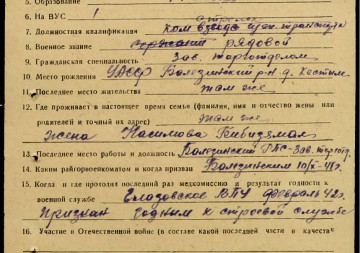 5. Образование
6. На ВУС 1
стрелок
7. Должностная квалификация ком взвода
8. Военное звание сержант рядовой
9. Гражданская специальность Зав. торготделом
10. Место рождения УАССР Балезинский р-н д. Кестым
11. Последнее место жительства там же
12. Где проживает в настоящее время семья (фамилия, имя и отчество жены или
родителей и точный их адрес) там же
жена Касимова Бибидзямал
13. Последнее место работы и должность Балезинский РПС – Зав. торгот.
14. Каким райгорвоенкоматом и когда призван Балезинским 10/
15. Когда и где проходил последний раз медкомиссию и результат годности к
военной службе Глазовское ВПУ февраль 42 г.
Признан годным к строевой службе
16. Участие в Отечественной войне (в составе какой последней части в качеств